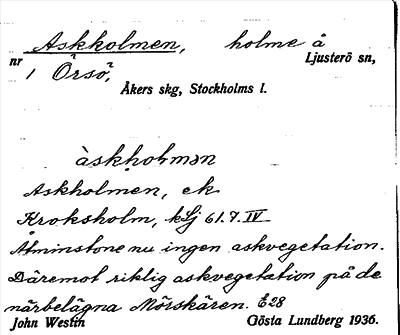 Askholmen, holme å
nr 1 Örsö, Ljusterö sn,
Åkers skg, Stockholms l.
àskhoƚmən
Askholmen, ek
Kroksholm, klj 61.7.IV
Åtminstone nu ingen askvegetation.
Däremot riklig askvegetation på de
närbelägna Mörskären. E28
John Westin Gösta Lundberg 1936.